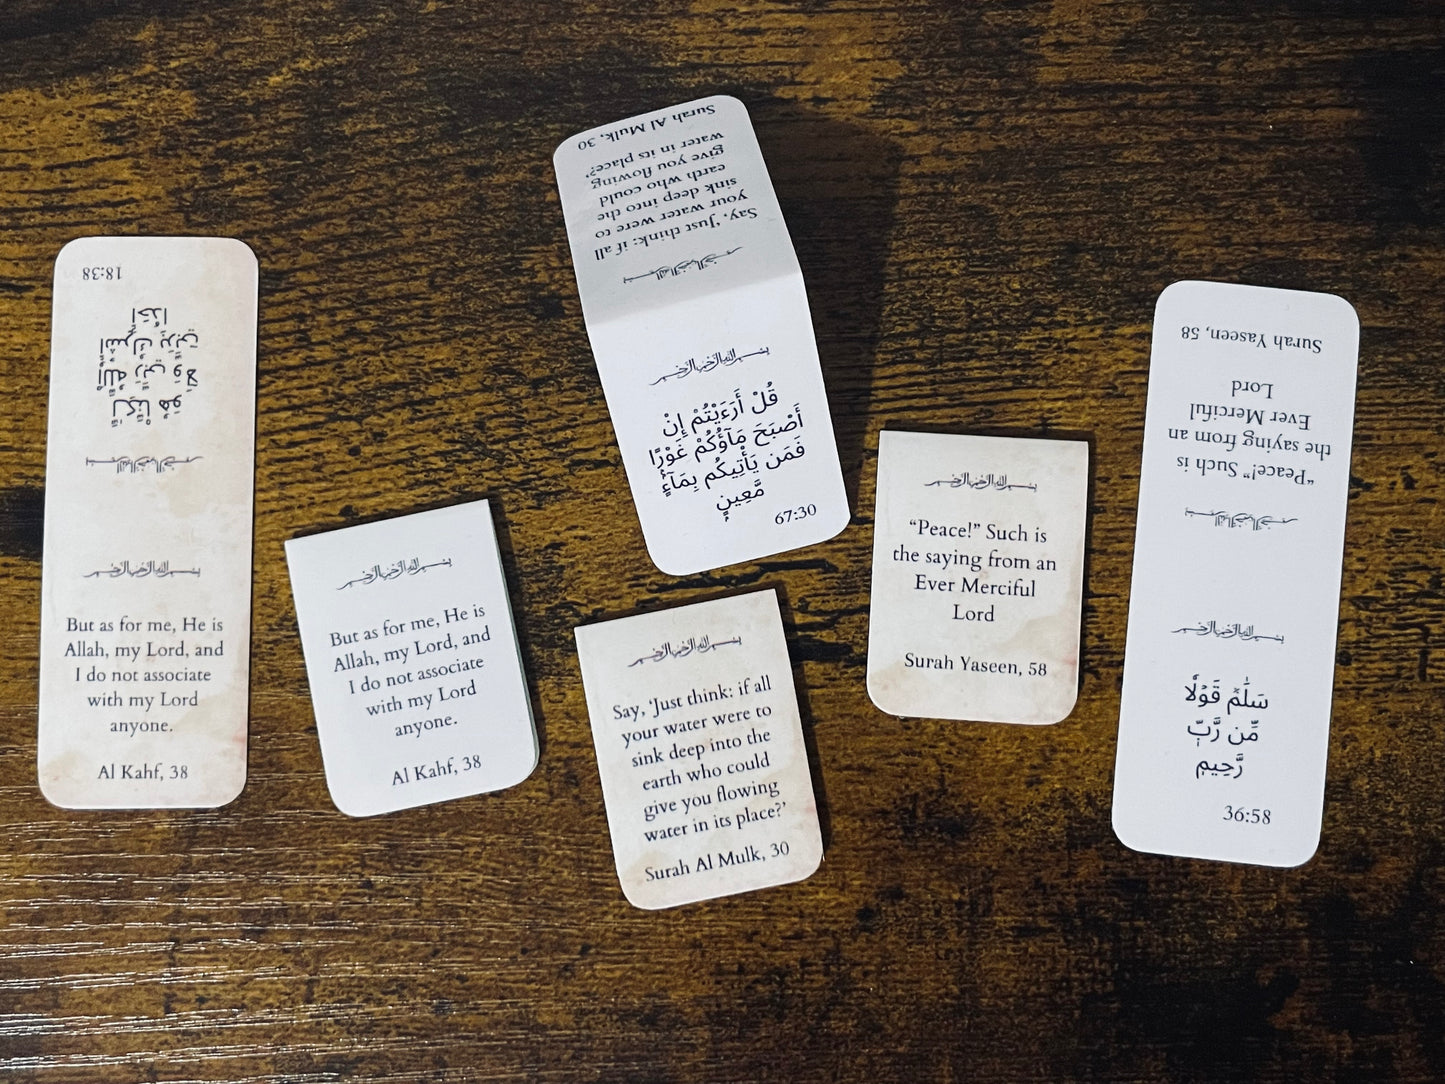 بسم الله الرحمن الرحيم
لَّٰكِنَّا۠ هُوَ
ٱللَّهُ رَبِّى وَلَآ
أُشْرِكُ بِرَبِّىٓ
أَحَدًا
18:38
بسم الله الرحمن الرحيم
But as for me, He is
Allah, my Lord, and
I do not associate
with my Lord
anyone.
Al Kahf, 38
بسم الله الرحمن الرحيم
But as for me, He is
Allah, my Lord, and
I do not associate
with my Lord
anyone.
Al Kahf, 38
بسم الله الرحمن الرحيم
Say, 'Just think: if all
your water were to
sink deep into the
earth who could
give you flowing
water in its place?'
Surah Al Mulk, 30
بسم الله الرحمن الرحيم
قُلْ أَرَءَيْتُمْ إِنْ
أَصْبَحَ مَآؤُكُمْ غَوْرًا
فَمَن يَأْتِيكُم بِمَآءٍ
مَّعِينٍۭ
67:30
بسم الله الرحمن الرحيم
Say, 'Just think: if all
your water were to
sink deep into the
earth who could
give you flowing
water in its place?'
Surah Al Mulk, 30
بسم الله الرحمن الرحيم
“Peace!” Such is
the saying from an
Ever Merciful
Lord
Surah Yaseen, 58
بسم الله الرحمن الرحيم
“Peace!” Such is
the saying from an
Ever Merciful
Lord
Surah Yaseen, 58
بسم الله الرحمن الرحيم
سَلَٰمٌ قَوْلًا
مِّن رَّبٍّ
رَّحِيمٍ
36:58